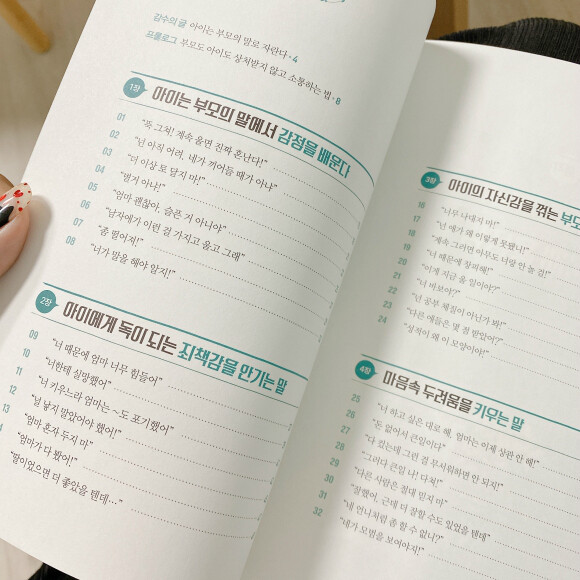 감수의 글 아이는 부모의 말로 자란다 · 4
프롤로그 부모도 아이도 상처받지 않고 소통하는 법 · 8
1장 아이는 부모의 말에서 감정을 배운다
01 "뚝 그쳐! 계속 울면 진짜 혼난다!"
02 "넌 아직 어려, 네가 끼어들 때가 아냐"
03 "더 이상 토 달지 마!"
04 "별거 아냐!"
05 "엄마 괜찮아, 슬픈 거 아니야"
06 "남자애가 이런 걸 가지고 울고 그래"
07 "좀 떨어져!"
08 "너가 말을 해야 알지!"
2장 아이에게 독이 되는 죄책감을 만기는 말
09 "너 때문에 엄마 너무 힘들어"
10 "너한테 실망했어"
11 "너 키우느라 엄마는 ~도 포기했어"
12 "널 낳지 말았어야 했어!"
13 "엄마 혼자 두지 마"
"엄마가 다 봤어!"
"딸이었으면 더 좋았을 텐데…"
3장 아이의 자신감을 꺾는 부모
16 "너무 나대지 마!"
17 "넌 애가 왜 이렇게 못됐니!"
18 "계속 그러면 아무도 너랑 안 놀 걸!"
19 "너 때문에 창피해!"
20 "이게 지금 울 일이야?"
21 "너 바보야?"
22 "넌 공부 체질이 아닌가 봐!"
23 "다른 애들은 몇 점 받았어?"
24 "성적이 왜 이 모양이야!"
4장 마음속 두려움을 키우는 말
25 "너 하고 싶은 대로 해, 엄마는 이제 상관 안 해!"
26 "돈 없어서 큰일이다"
27 "다 컸는데 그런 걸 무서워하면 안 되지!"
28 "그러다 큰일 나! 다쳐!"
29 "다른 사람은 절대 믿지 마"
30 "잘했어. 근데 더 잘할 수도 있었을 텐데"
31 "네 언니처럼 좀 할 수 없니?"
32 "네가 모범을 보여야지!"